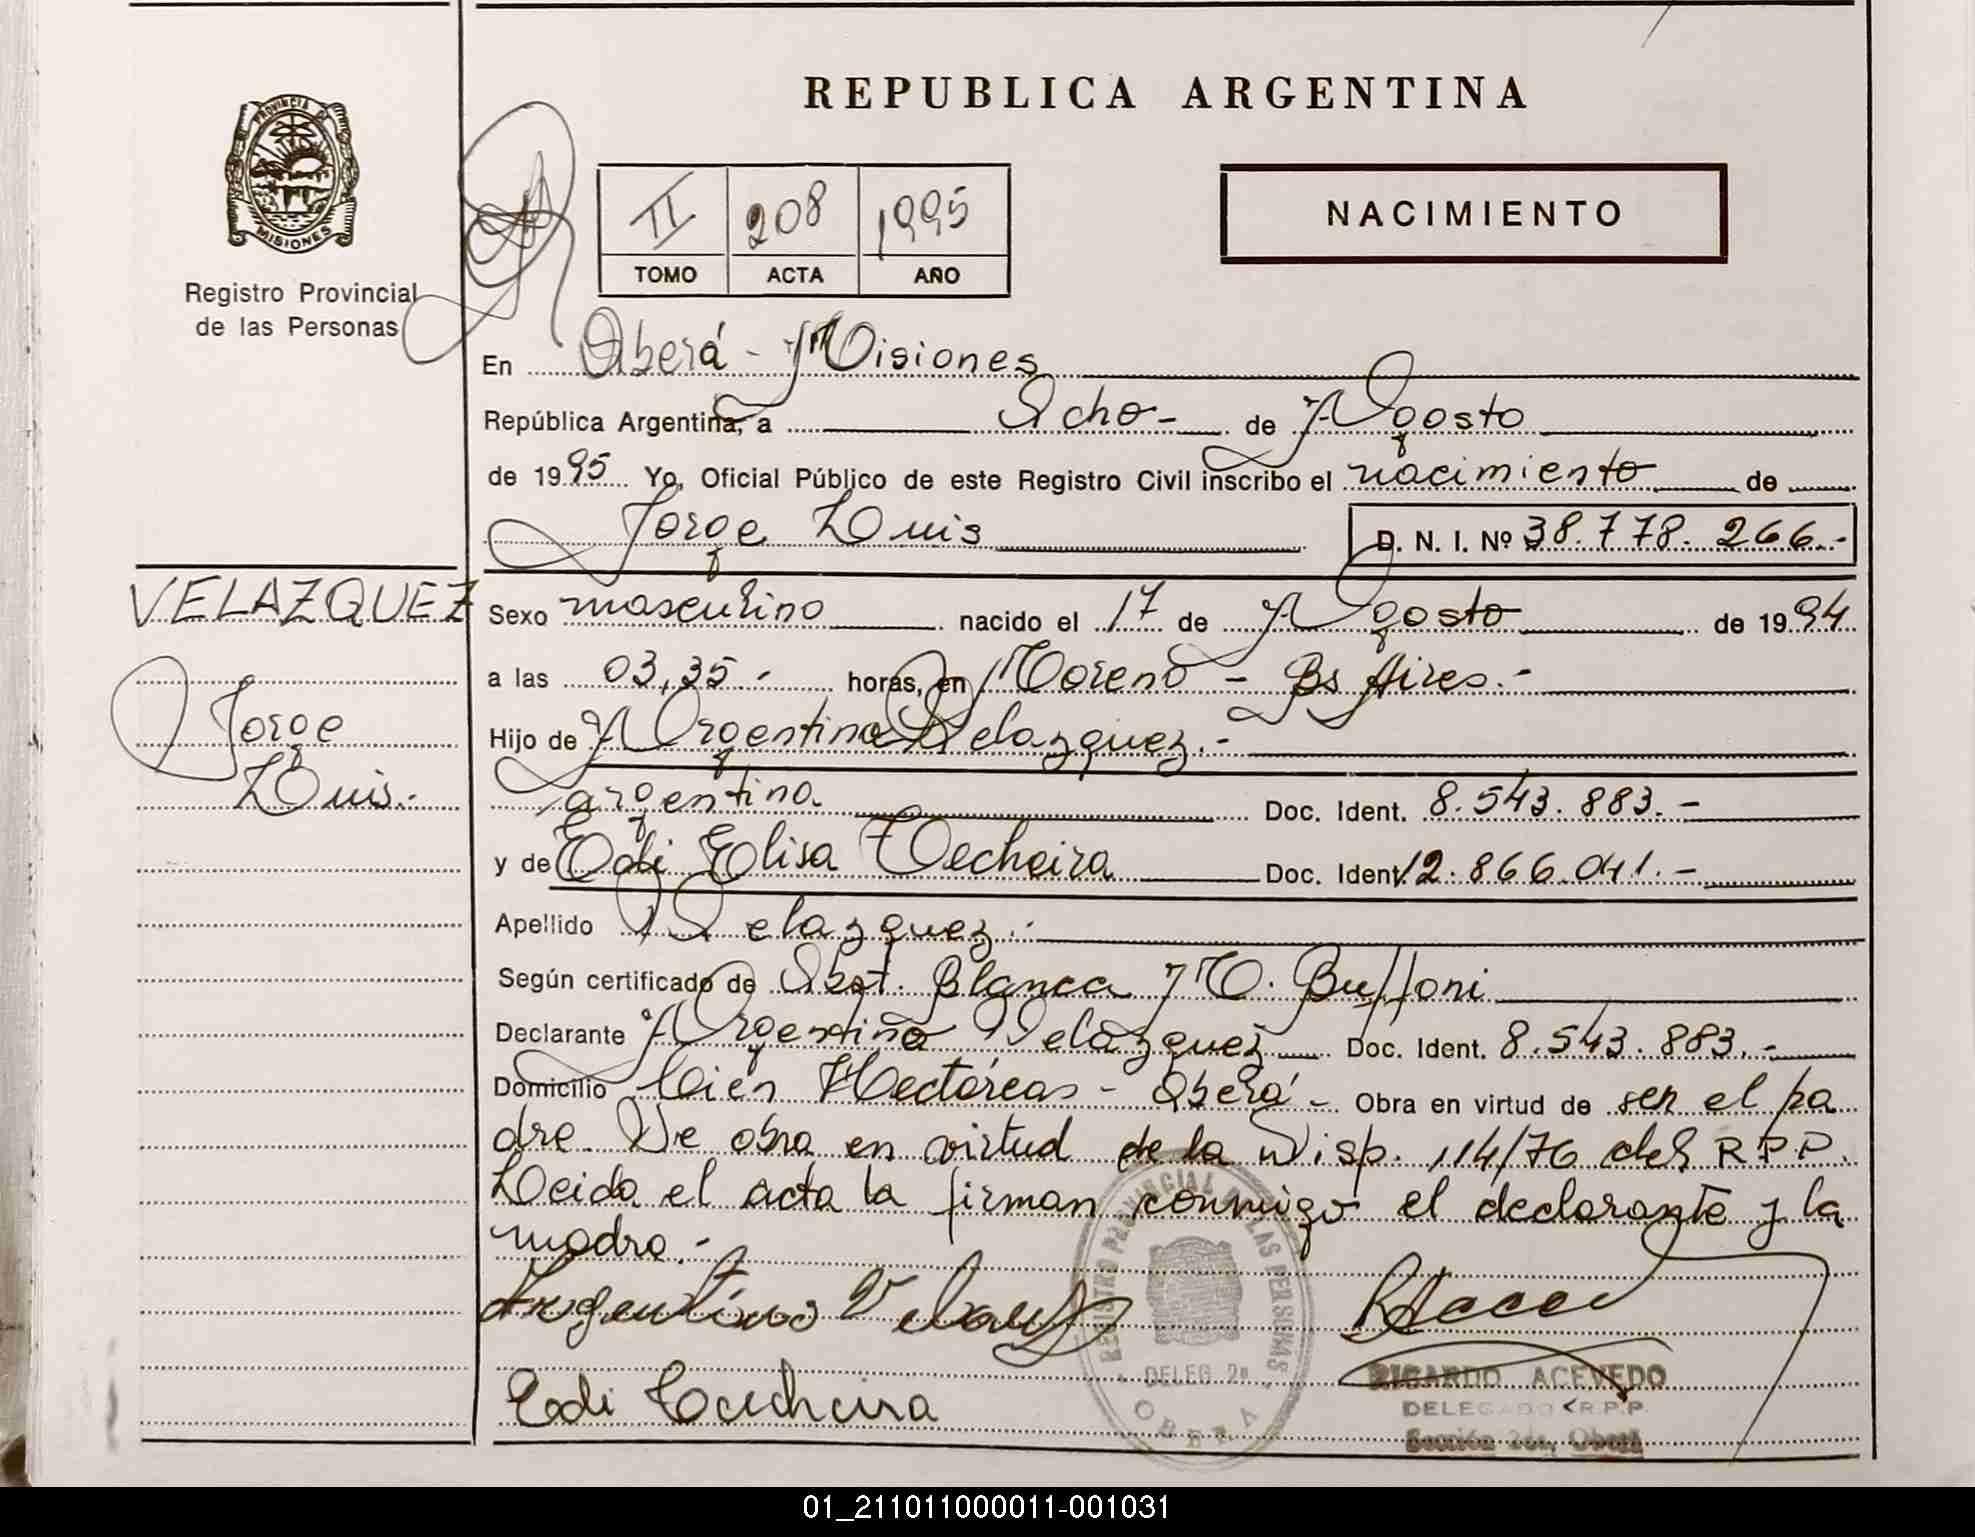 REPUBLICA ARGENTINA
PROVINCIA DE
MISIONES
Registro Provincial
de las Personas
II 208 1995
TOMO ACTA AÑO
NACIMIENTO
En Oberá - Misiones
República Argentina, a Ocho - de Agosto
de 1995 Yo, Oficial Público de este Registro Civil inscribo el nacimiento de
Jorge Luis D. N. I. Nº 38.778.266.-
VELAZQUEZ
Jorge
Luis.-
Sexo masculino nacido el 17 de Agosto de 1994
a las 03,35.- horas, en Moreno - Bs Aires.-
Hijo de Argentino Velazquez.-
argentino. Doc. Ident. 8.543.883.-
y de Edi Elisa Techeira Doc. Ident. 12.866.041.-
Apellido Velazquez.-
Según certificado de Obst. Blanca M. Buffoni
Declarante Argentino Velazquez Doc. Ident. 8.543.883.-
Domicilio Cien Hectáreas - Oberá - Obra en virtud de ser el pa
dre. Se obra en virtud de la Disp. 114/76 del R.P.P.
Leida el acta la firman conmigo el declarante y la
madre.-
Argentino Velazquez
REGISTRO PROVINCIAL DE LAS PERSONAS
DELEG 2ª
OBERA
Edi Techeira
RICARDO ACEVEDO
DELEGADO R.P.P.
Sección 2da, Oberá
01_211011000011-001031